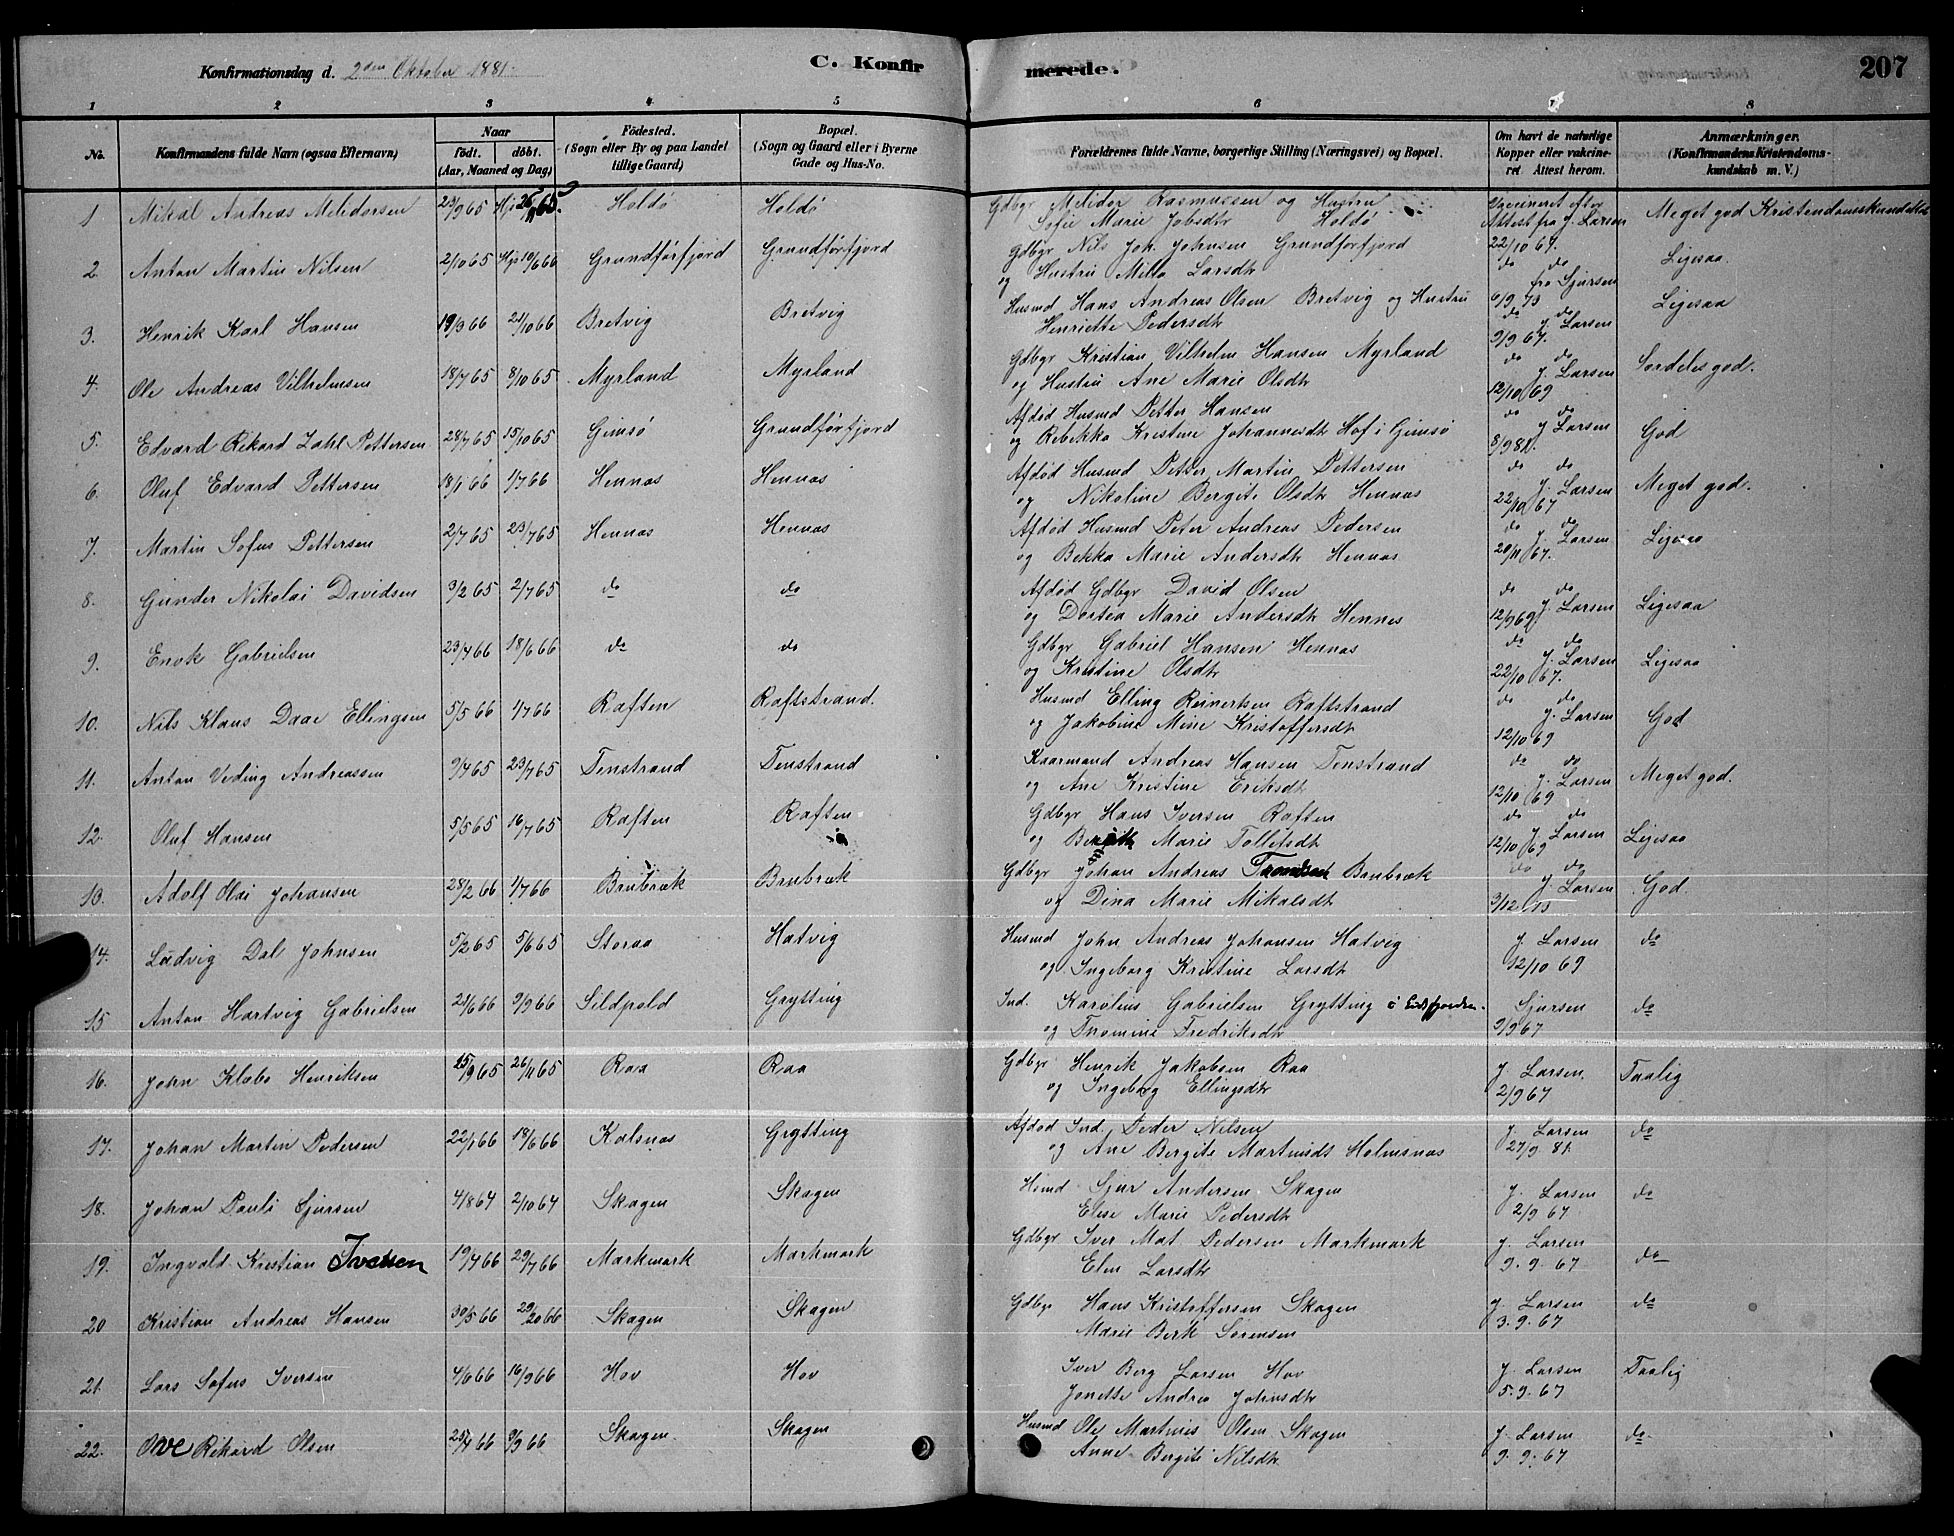 Konfirmationsdag d. 2den Oktober 1881. C. Konfirmerede. 207
1 2 3 4 5 6 7 8
No. Konfirmandens fulde Navn (ogsaa Efternavn) Naar født. døbt. (Aar, Maaned og Dag) Fødested. (Sogn eller By og paa Landet tillige Gaard) Bopæl. (Sogn og Gaard eller i Byerne Gade og Hus-No. Forældrenes fulde Navne, borgerlige Stilling (Næringsvei) og Bopæl. Om havt de naturlige Kopper eller vakcineret. Attest herom. Anmærkninger. (Konfirmandens Kristendomskundskab m. V.)
1 Mikal Andreas Melidorsen 23/9 65 Holdö Holdö Gdbgr Melidor Rasmussen og Hustru Vaccineret efter
Sofie Marie Jobsdtr Holdö Attest fra J. Larsen Meget god Kristendomskundskab
22/10 67.
2. Anton Martin Nilsen 2/10 65 Hjd 10/6 66 Grundförfjord Grundförfjord Gdbgr Nils Joh. Johnsen Grundförfjord do do Ligesaa.
og Hustru Mila Larsdtr fra Sjursen
6/9 73
3. Henrik Karl Hansen 19/3 66 21/10 66 Bretvig Bretvig Husmd Hans Andreas Olsen Bretvig og Hustru do do Ligesaa
Henriette Pedersdtr J. Larsen
9/9 67.
4. Ole Andreas Vilhelmsen 18/7 65 8/10 65 Myrland Myrland Gdbgr Kristian Vilhelm Hansen Myrland do do Særdeles god.
og Hustru Ane Marie Olsdtr J. Larsen
12/10 69
5. Edvard Rikard Zahl Pettersen 28/7 65 15/10 65 Gimsö Grundförfjord Afdöd Husmd Petter Hansen do do God
og Rebekka Kristine Johannesdtr Hof i Gimsö J Larsen
8/9 81.
6. Oluf Edvard Pettersen 18/1 66 1/7 66 Hennæs Hennæs Afdöd Husmd Petter Martin Pettersen do do Meget god.
og Nikoline Bergite Olsdtr Hennæs J. Larsen
22/10 67
7. Martin Sofus Pettersen 2/7 65 23/7 65 Hennæs Hennæs Afdöd Husmd Peter Andreas Pedersen do do Ligesaa
og Bekka Marie Andersdtr Hennæs J. Larsen
20/11 67.
8. Gunder Nikolai Davidsen 3/2 65 2/7 65 do do Afdöd Gdbgr David Olsen do do
og Dortea Marie Andersdtr Hennes 12/9 69 J. Larsen Ligesaa
9. Enok Gabrielsen 23/4 66 18/6 66 do do Gdbgr Gabriel Hansen Hennæs do do
og Kristine Olsdtr J. Larsen Ligesaa
22/10 67.
10. Nils Klaus Daae Ellingsen 5/5 66 1/7 66 Raften Raftstrand. Husmd Elling Reinertsen Raftstrand do do
og Jakobine Mine Kristoffersdtr J. Larsen God
12/10 69
11. Anton Veding Andreassen 9/4 65 23/7 65 Tenstrand Tenstrand Kaarmand Andreas Hansen Tenstrand do do
og Ane Kristine Eriksdtr J. Larsen Meget god.
12/10 69
12. Oluf Hansen 5/5 65 16/7 65 Raften Raften Gdbgr Hans Iversen Raften do do
og Marie Tollefsdtr 12/10 69 J Larsen Ligesaa
13. Adolf Olai Johansen 28/2 66 1/7 66 Brubræk Brubræk Gdbgr Johan Andreas Brubræk do do
og Dina Marie Mikalsdtr J Larsen God.
14. Ludvig Dal Johnsen 5/2 65 5/6 65 Storaa Hatvig Husmd John Andreas Johansen Hatvig J Larsen do
og Ingeborg Kristine Larsdtr 12/10 69
15 Anton Hartvig Gabrielsen 21/6 66 9/9 66 Sildpold Grytting Ind. Karolius Gabrielsen Grytting i Eidsfjorden. Sjursen do
og Tromine Fredriksdtr 9/9 67
16. John Klæbo Henriksen 15/9 65 26/11 65 Raa Raa Gdbgr Henrik Jakobsen Raa J Larsen Taalig
og Ingeborg Ellingsdtr 2/9 67
17. Johan Martin Pedersen 22/1 66 18/6 66 Kalsnæs Grytting Afdöd Ind. Peder Nilsen J. Larsen do
og Ane Bergite Martinsdt Holmsnæs 27/9 81.
18. Johan Pauli Sjursen 4/8 64 2/10 64 Skagen Skagen Hsmd Sjur Andersen Skagen J. Larsen do
Elise Marie Pedersdtr 2/9 67
19. Ingvald Kristian Iversen 19/4 66 29/7 66 Markmark Markmark Gdbgr Iver Mat. Pedersen Markmark J. Larsen do
Elen Larsdtr 9. 9. 67
20 Kristian Andreas Hansen 30/5 66 Skagen Skagen Gdbgr Hans Kristoffersen Skagen J. Larsen do
Marie Berk Sörensen 3. 9. 67
21. Lars Sofus Iversen 4/6 66 16/9 66 Hov Hov Iver Berg Larsen Hov J. Larsen Taalig
Jonette Andrea Johnsdtr 5. 9. 67
22. Ove Rikard Olsen 25/4 66 9/9 66 Skagen Skagen Husmd Ole Martinus Olsen Skagen J. Larsen do
Anne Bergite Nilsdtr 9. 9. 67